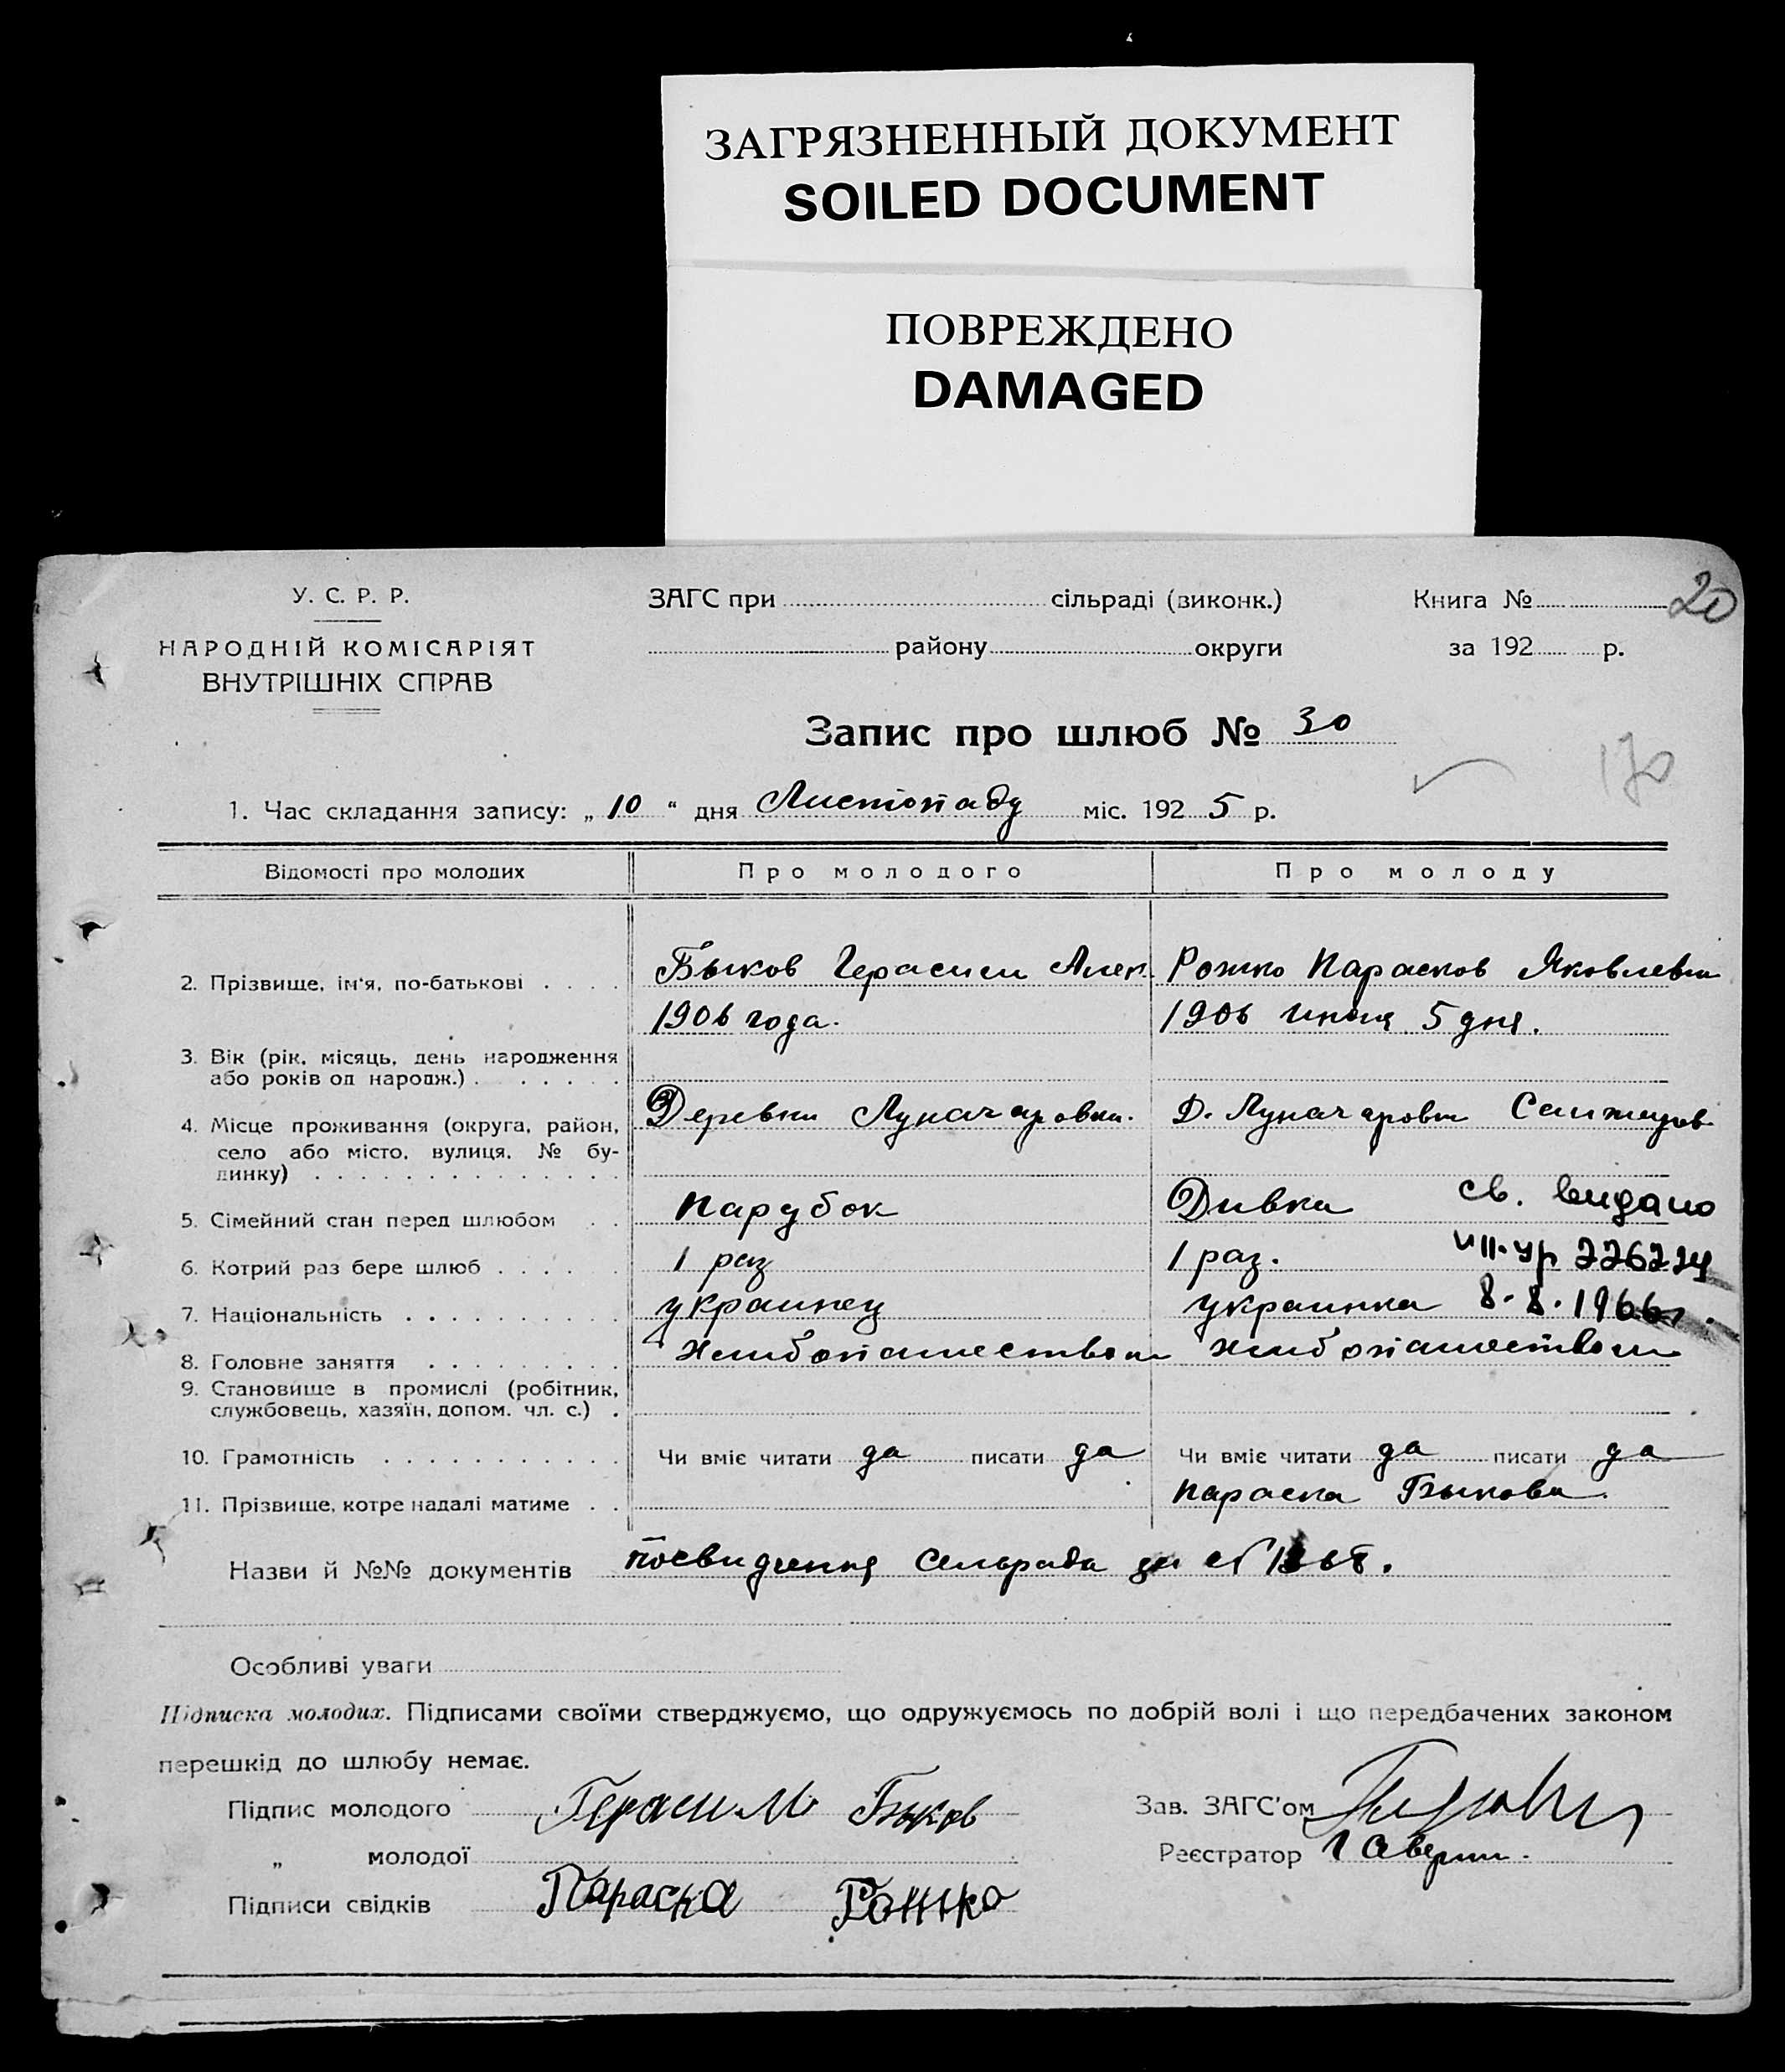 ЗАГРЯЗНЕННЫЙ ДОКУМЕНТ
SOILED DOCUMENT
ПОВРЕЖДЕНО
DAMAGED
У. С. Р. Р.
НАРОДНІЙ КОМІСАРІЯТ
ВНУТРІШНІХ СПРАВ
ЗАГС при сільраді (виконк.)
району округи
Книга №
20
за 192 р.
Запис про шлюб № 30
170
1. Час складання запису: „ 10 “ дня Листопаду міс. 192 5 р.
Відомості про молодих Про молодого Про молоду
2. Прізвище, ім'я, по-батькові . . . . Быков Герасим Алек. Рожко Парасков Яковлевна
1906 года. 1906 5 дня.
3. Вік (рік, місяць, день народження
або років од народж.) . . . . . .
4. Місце проживання (округа, район, Деревни Луначаровки. Д. Луначаровки
село або місто, вулиця, № бу-
динку) . . . . . . . . . . . . . .
5. Сімейний стан перед шлюбом . . Парубок Дивка св. видано
6. Котрий раз бере шлюб . . . . . 1 раз 1 раз.
7. Національність . . . . . . . . . . украинец украинка 8.8.1966г.
8. Головне заняття . . . . . . . . . Хлибопашеством хлибопашеством
9. Становище в промислі (робітник,
службовець, хазяїн, допом. чл. с.) .
10. Грамотність . . . . . . . . . . . Чи вміє читати да писати да Чи вміє читати да писати да
11. Прізвище, котре надалі матиме . . Параска Быкова.
Назви й №№ документів посвидчення сельрада за
Особливі уваги
Підписка молодих. Підписами своїми стверджуємо, що одружуємось по добрій волі і що передбачених законом
перешкід до шлюбу немає.
Підпис молодого Герасим Быков Зав. ЗАГС'ом
„ молодої Реєстратор
Підписи свідків Параска Рожко